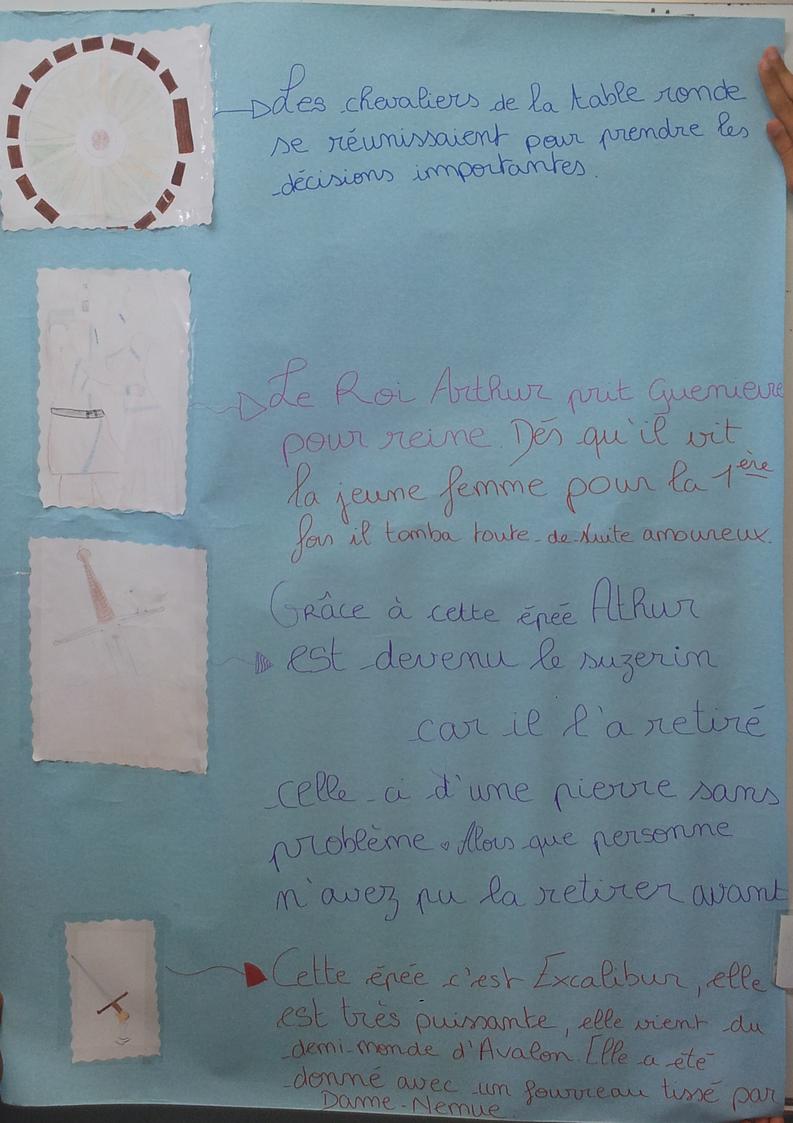 Les chevaliers de la table ronde
se réunissaient pour prendre les
décisions importantes.
Le Roi Arthur prit Guenievre
pour reine. Dès qu'il vit
la jeune femme pour la 1ère
fois il tomba toute-de-suite amoureux.
Grâce à cette épée Athur
est devenu le suzerin
car il l'a retiré
celle-ci d'une pierre sans
problème. Alors que personne
n'avez pu la retirer avant
Cette épée c'est Excalibur, elle
est très puissante, elle vient du
demi-monde d'Avalon. Elle a été
donné avec un fourreau tissé par
Dame-Nemue.